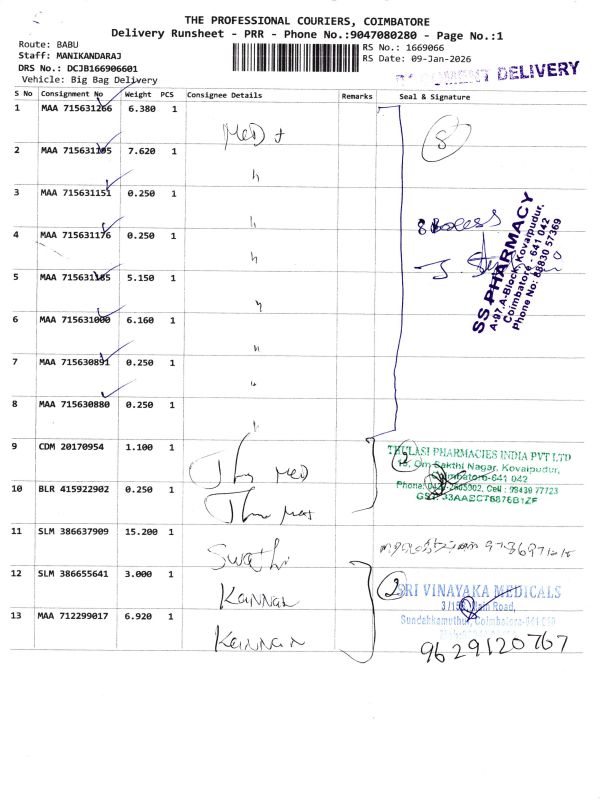 THE PROFESSIONAL COURIERS, COIMBATORE
Delivery Runsheet - PRR - Phone No.:9047080280 - Page No.:1
Route: BABU
Staff: MANIKANDARAJ
DRS No.: DCJB166906601
Vehicle: Big Bag Delivery
RS No.: 1669066
RS Date: 09-Jan-2026
DELIVERY
S No Consignment No Weight PCS Consignee Details Remarks Seal & Signature
1 MAA 715631266 6.380 1 MED + 8
2 MAA 715631195 7.620 1 "
3 MAA 715631151 0.250 1 "
4 MAA 715631176 0.250 1 "
5 MAA 715631185 5.150 1 "
6 MAA 715631000 6.160 1 "
7 MAA 715630891 0.250 1 "
8 MAA 715630880 0.250 1 "
8 Boxess
SS PHARMACY
A-97, A-Block, Kovaipudur,
Coimbatore - 641 042
Phone No: 88830 57369
9 CDM 20170954 1.100 1 MED 2
THULASI PHARMACIES INDIA PVT LTD
Om Sakthi Nagar, Kovaipudur,
Coimbatore-641 042
10 BLR 415922902 0.250 1
11 SLM 386637909 15.200 1 Swathi
12 SLM 386655641 3.000 1 Kannan 2
SRI VINAYAKA MEDICALS
Main Road,
Sundakkamuthur, Coimbatore
13 MAA 712299017 6.920 1 Kannan
9629120767